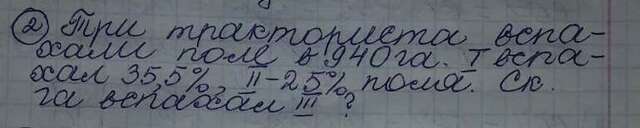 ② Три тракториста вспа-
хали поле в 940 га. I вспа-
хал 35,5%, II - 25% поля. Ск.
га вспахал III?